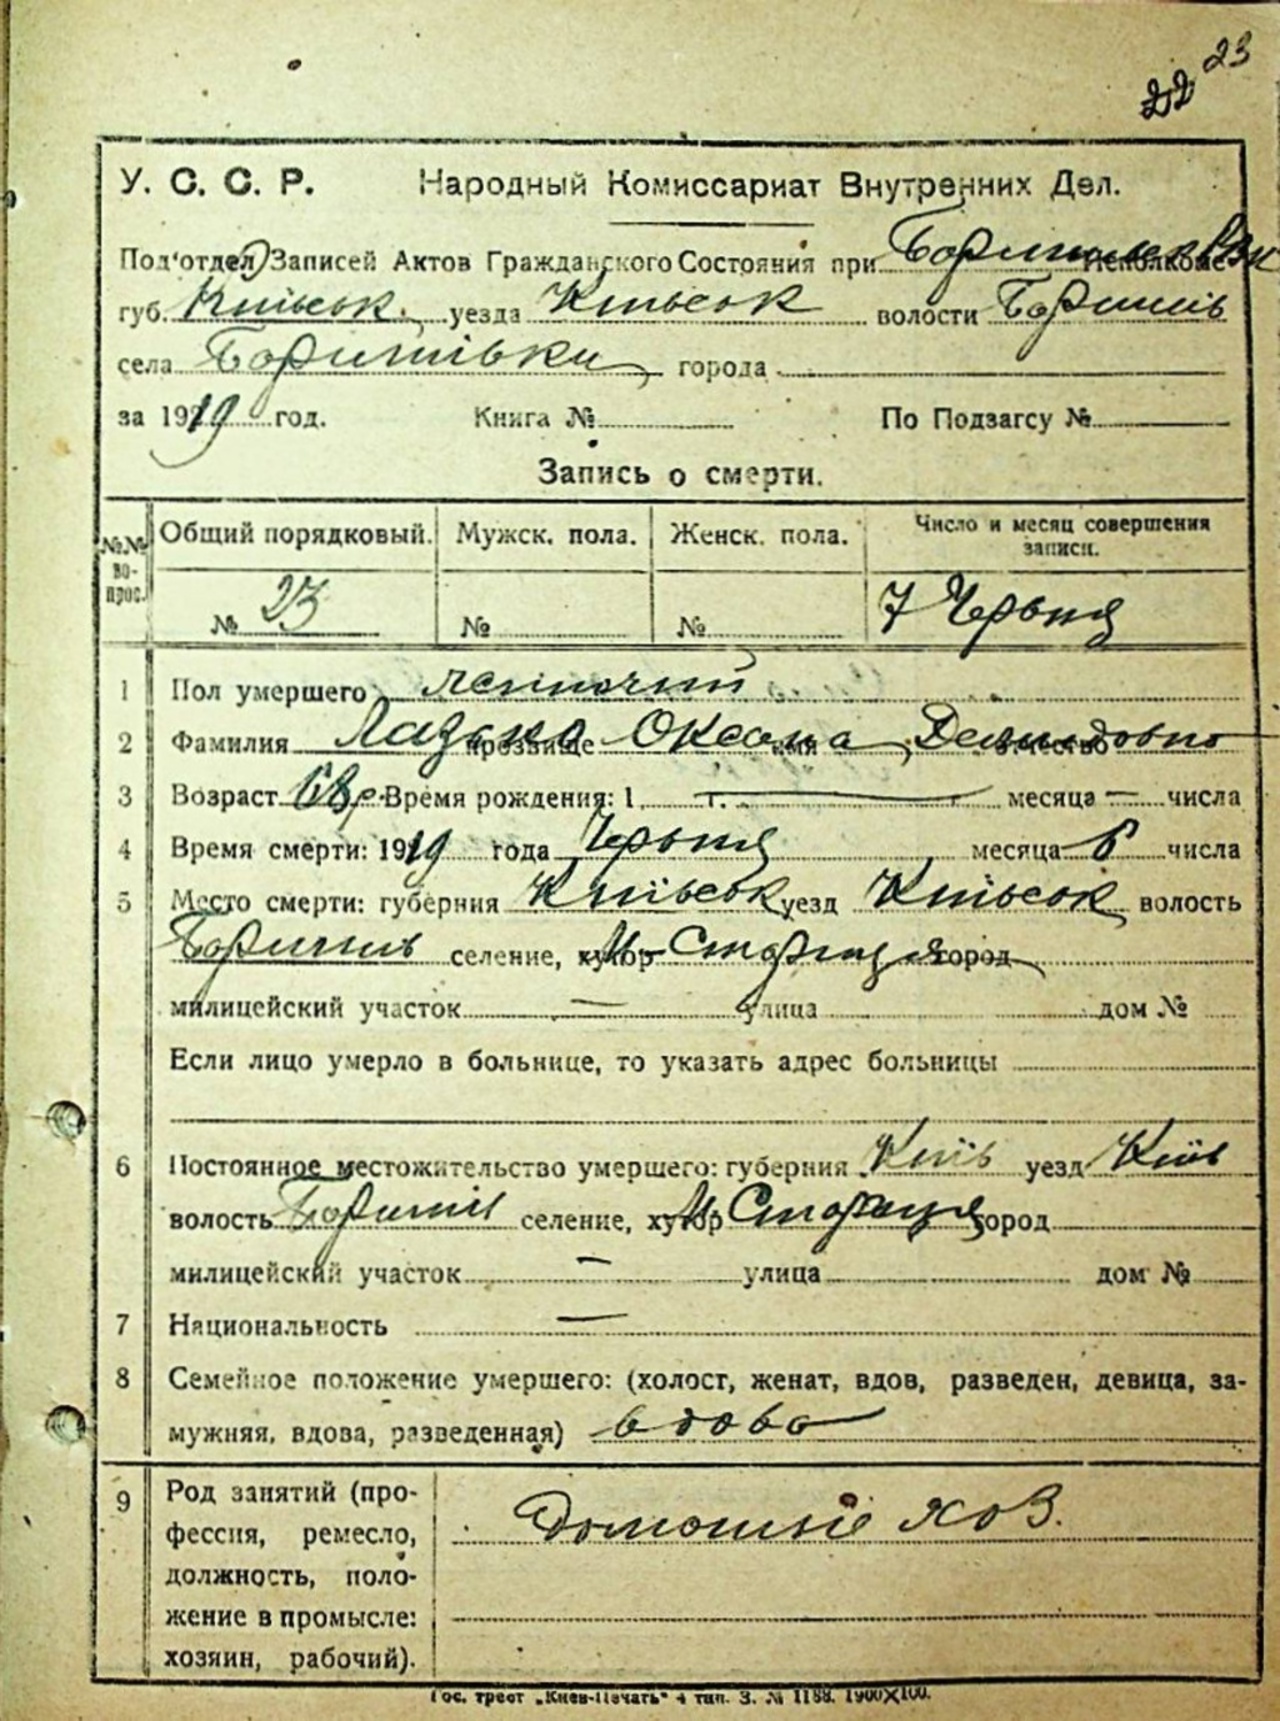 23
22
У. С. С. Р. Народный Комиссариат Внутренних Дел.
Под'отдел Записей Актов Гражданского Состояния при Исполкоме
губ. Київськ. уезда Київськ волости
села города
за 1919 год. Книга № По Подзагсу №
Запись о смерти.
№№ вопрос. Общий порядковый. Мужск. пола. Женск. пола. Число и месяц совершения записи.
№ 23 № № 7 Червня
1 Пол умершего
2 Фамилия прозвище Оксана имя Демидовна отчество
3 Возраст 68 р. Время рождения: 1 г. — месяца — числа
4 Время смерти: 1919 года Червня месяца 6 числа
5 Место смерти: губерния Київськ уезд Київськ волость
селение, хутор город
милицейский участок — улица дом №
Если лицо умерло в больнице, то указать адрес больницы
6 Постоянное местожительство умершего: губерния Київ уезд Київ
волость селение, хутор город
милицейский участок — улица дом №
7 Национальность —
8 Семейное положение умершего: (холост, женат, вдов, разведен, девица, за-
мужняя, вдова, разведенная) вдова
9 Род занятий (про-
фессия, ремесло, Домашнє хоз.
должность, поло-
жение в промысле:
хозяин, рабочий).
Гос. трест „Киев-Печать" 4 тип. З. № 1188. 1900×100.